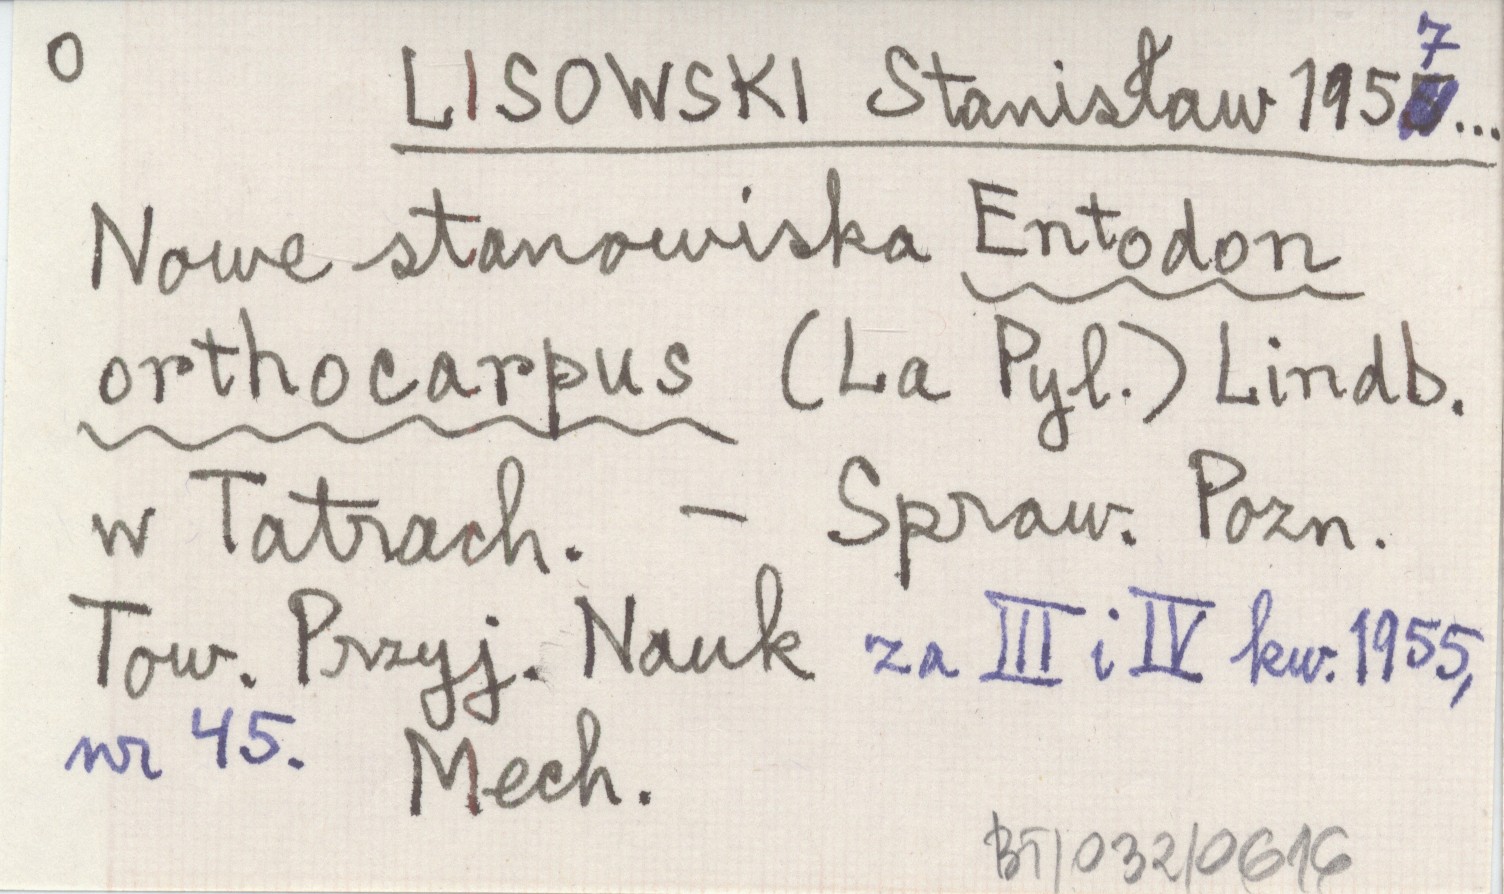 O LISOWSKI Stanisław 1957...
Nowe stanowiska Entodon
orthocarpus (La Pyl.) Lindb.
w Tatrach. – Spraw. Pozn.
Tow. Przyj. Nauk za III i IV kw. 1955,
nr 45. Mech.
BT/032/0616